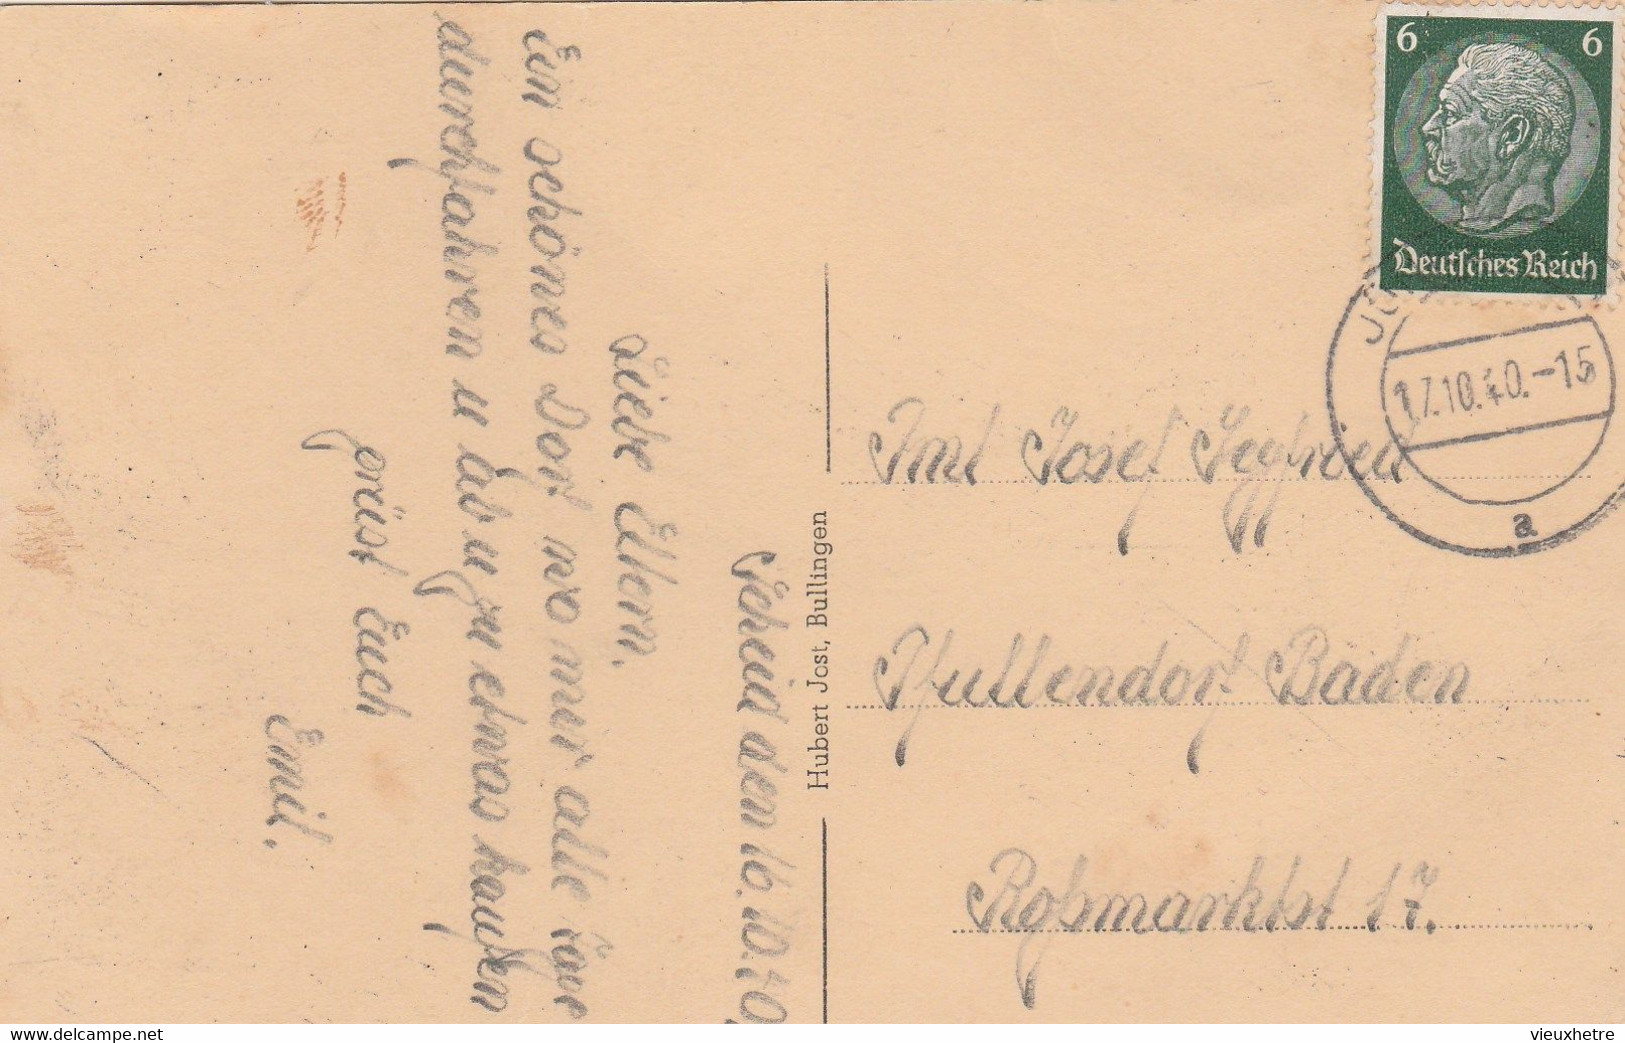 Scheid den 16.10.40
Liebe Eltern.
Ein schönes Dorf wo mir alle Tage
durchfahren u ab u zu etwas kaufen
grüst Euch
Emil.
Hubert Jost, Bullingen
6 6
Deutsches Reich
17.10.40.-15
a
Josef
Pfullendorf Baden
Roßmarktst 17.
delcampe.net
vieuxhetre